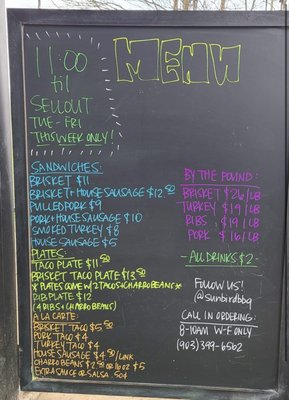 11:00
til
SELLOUT
TUE - FRI
THIS WEEK ONLY!
MENU
SANDWICHES:
BRISKET $11
BRISKET + HOUSE SAUSAGE $12.50
PULLED PORK $9
PORK + HOUSE SAUSAGE $10
SMOKED TURKEY $8
HOUSE SAUSAGE $5
PLATES:
TACO PLATE $11.50
BRISKET TACO PLATE $13.50
* PLATES COME W/ 2 TACOS + CHARRO BEANS *
RIB PLATE $12
(4 RIBS + CHARRO BEANS)
A LA CARTE:
BRISKET TACO $5.50
PORK TACO $4
TURKEY TACO $4
HOUSE SAUSAGE $4.50/LINK
CHARRO BEANS $2.50 OR 16 OZ $5
EXTRA SAUCE OR SALSA .50¢
BY THE POUND:
BRISKET $26/LB
TURKEY $19/LB
RIBS $19/LB
PORK $16/LB
- ALL DRINKS $2 -
FOLLOW US!
@sunbirdbbq
CALL IN ORDERING:
8-10AM W-F ONLY
(903) 399-6562